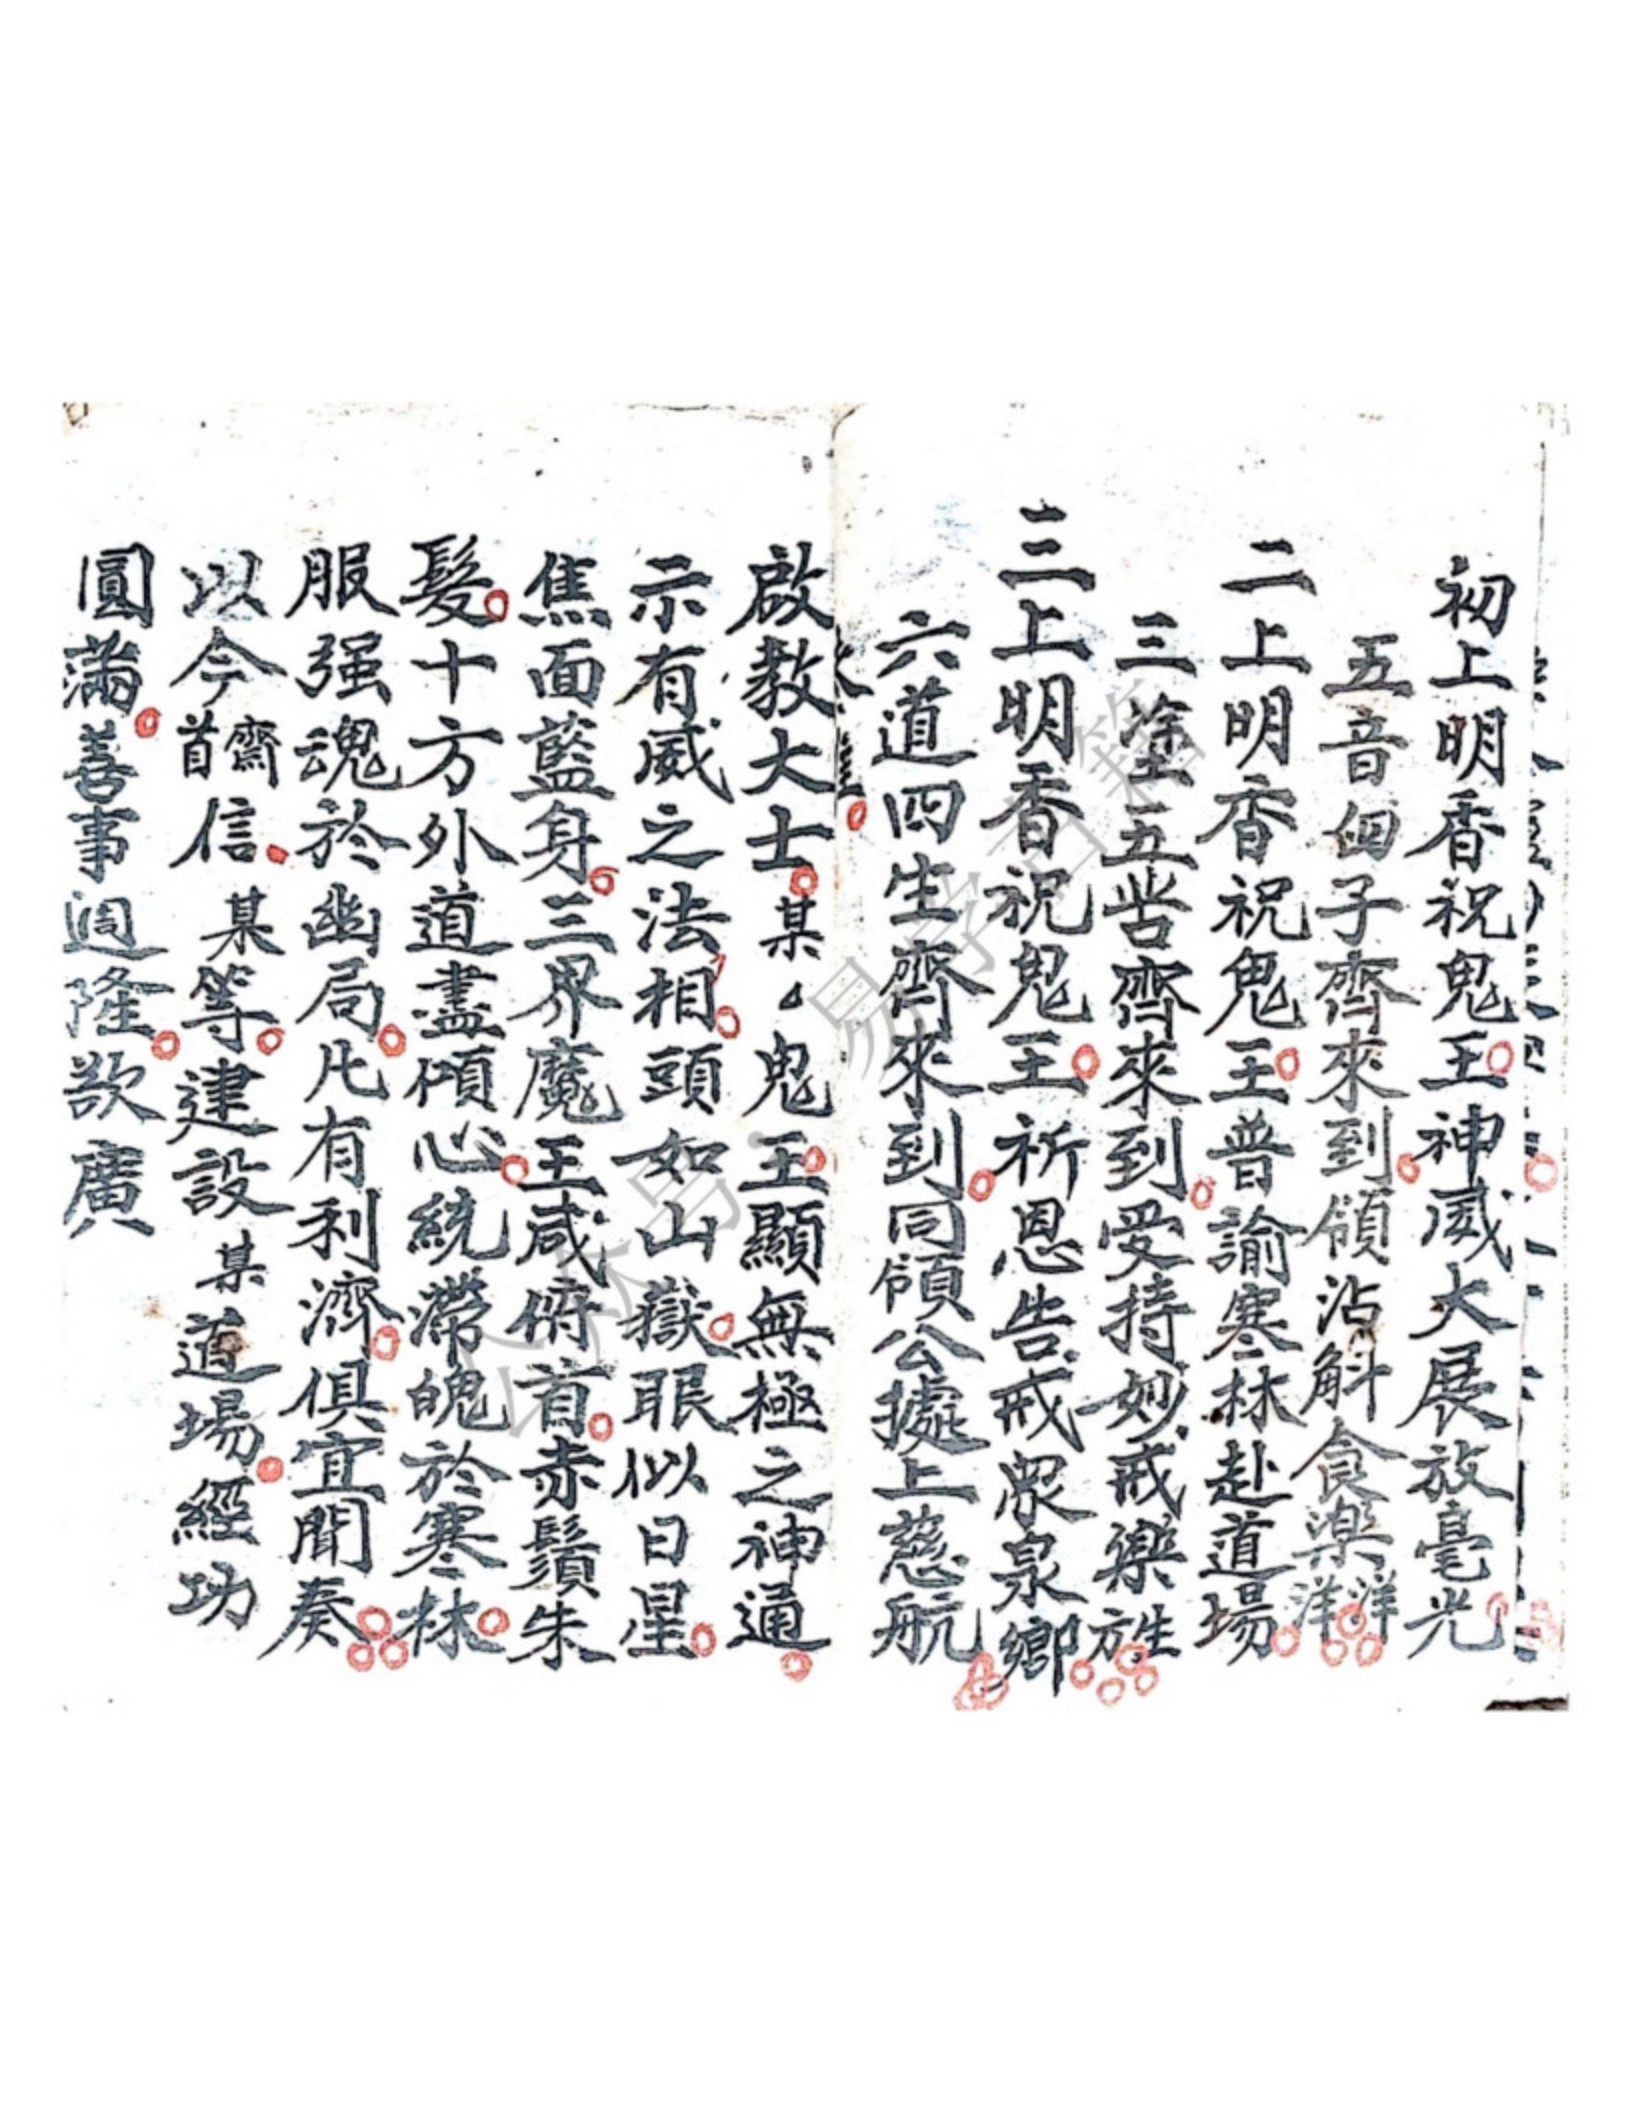 初上明香祝鬼王神威大展放毫光
五音㐫子齊來到領沾斛食樂洋洋
二上明香祝鬼王普諭寒林赴道場
三塗五苦齊來到受持妙戒樂
三上明香祝鬼王祈恩告戒眾泉鄉
六道四生齊來到同領公據上慈航
啟教大士某鬼王顯無極之神通
示有威之法相頭如山嶽眼似日星
焦面藍身三界魔王咸俯首赤鬚朱
髮十方外道盡傾心統滯魄於寒林
服强魂於幽局凡有利濟俱宜聞奏
以今齋首信某等建設某道場經功
圓滿善事週隆欲廣
公众号：易学古籍